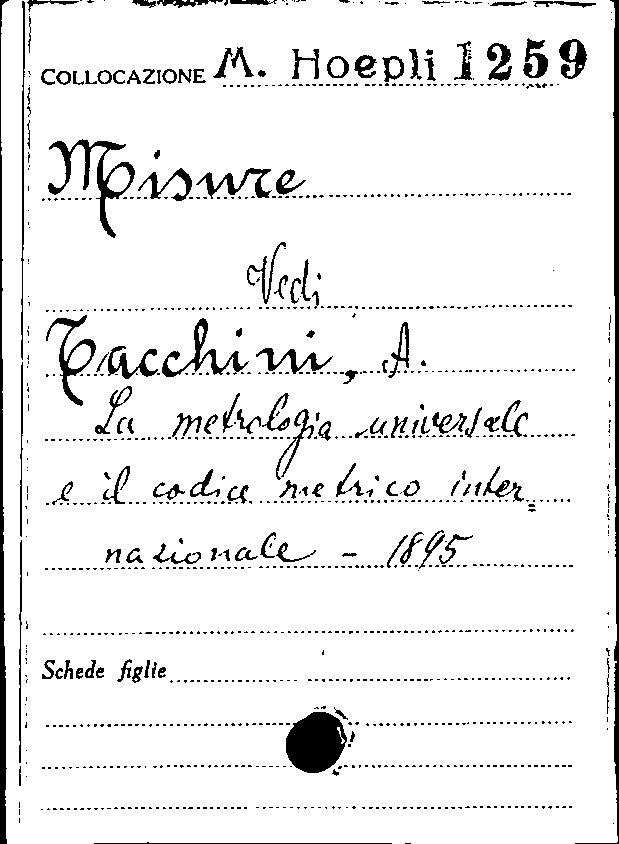 COLLOCAZIONE M. Hoepli 1259
Misure
Vedi
Tacchini, A.
La metrologia universale
e il codice metrico inter=
nazionale - 1895
Schede figlie